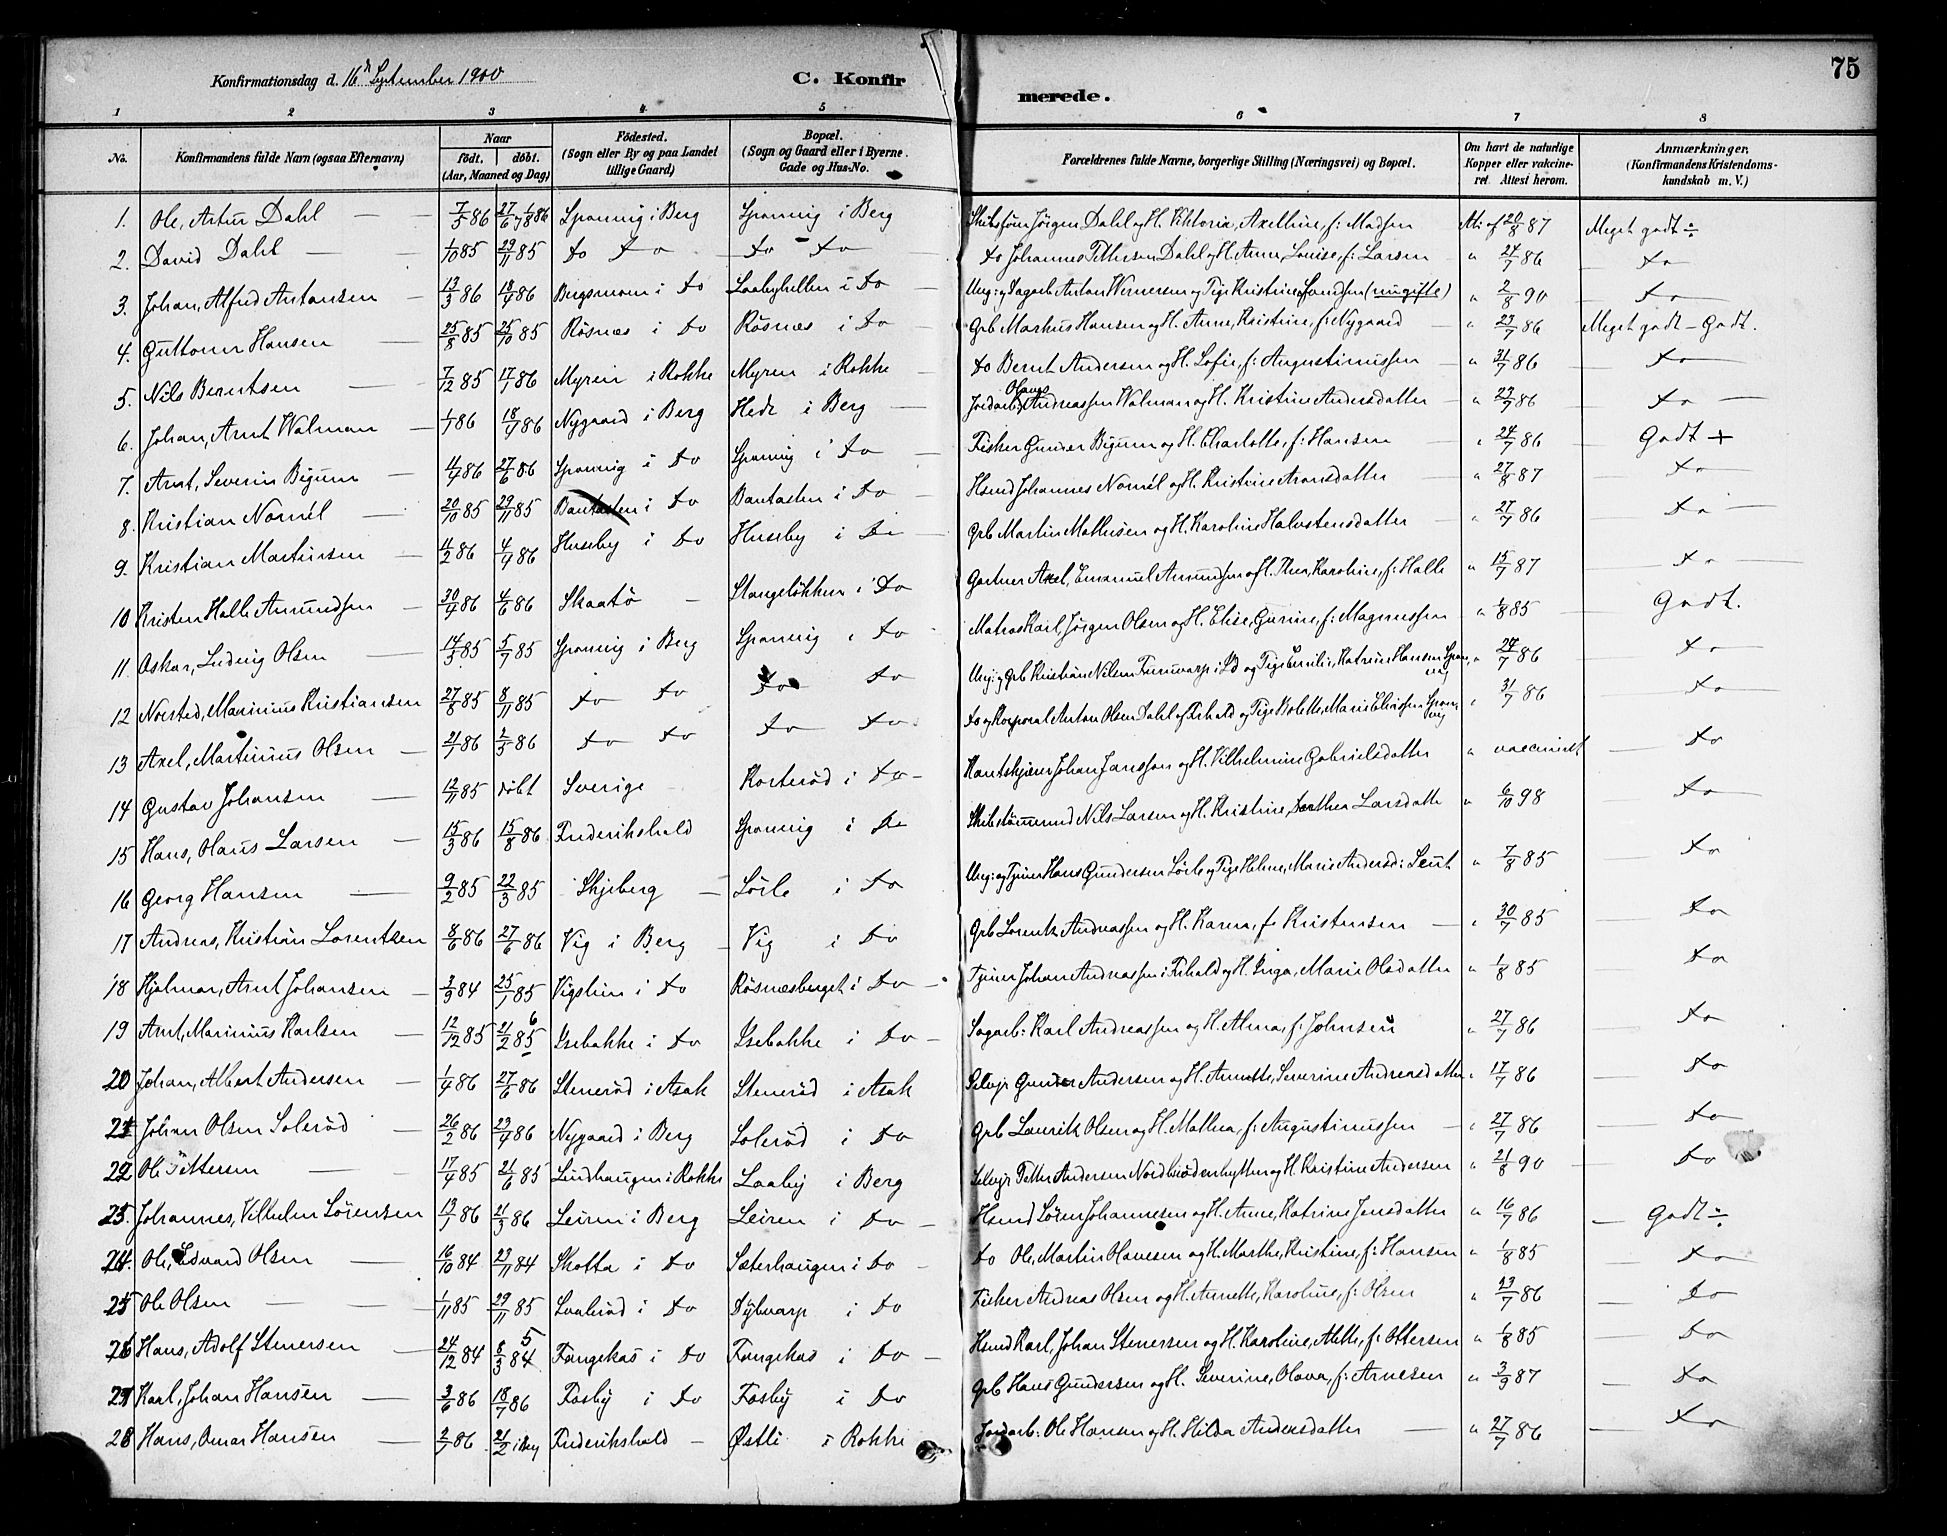 75
Konfirmationsdag d. 16de September 1900
C. Konfirmerede.
1 2 3 4 5 6 7 8
No. Konfirmandens fulde Navn (ogsaa Efternavn) Naar født. døbt. (Aar, Maaned og Dag) Fødested. (Sogn eller By og paa Landet tillige Gaard) Bopæl. (Sogn og Gaard eller i Byerne Gade og Hus-No. Forældrenes fulde Navne, borgerlige Stilling (Næringsvei) og Bopæl. Om havt de naturlige Kopper eller vakcineret. Attest herom. Anmærkninger, (Konfirmandens Kristendomskundskab m. V.)
1. Ole, Artur Dahl 7/5 86 27/6 86 Sponvig i Berg Sponvig i Berg Jørgen Dahl og H. Viktoria, Axelline, f: Madsen 20/8 87 Meget godt ÷
2. David Dahl 1/10 85 29/11 85 do do do do do Johannes Pettersen Dahl og H. Anne, Louise, f: Larsen " 24/7 86 do
3. Johan, Alfred Antonsen 13/3 86 18/4 86 i do Laabyhellen i do Ung: og Sagarb. Anton Wernersen og Pige Kristine (ugifte) " 2/8 90 do
4. Guttorm Hansen 25/8 85 25/10 85 Røsnæs i do Røsnæs i do Grb Markus Hansen og H. Anne, Kristine, f: Nygaard " 23/7 86 Meget godt - Godt.
5. Nils Berntsen 7/12 85 17/1 86 Myren i Rokke Myren i Rokke do Bernt Andersen og H. Sofie, f: Augustinussen " 31/7 86 do
6. Johan, Arnt Walman 1/1 86 18/4 86 Nygaard i Berg Hede i Berg Jordarb: Olaus Andreassen Walman og H. Kristine Andersdatter " 23/7 86 do
7. Arnt, Severin Bigum 4/4 86 27/6 86 Sponvig i do Sponvig i do Fisker Gunder Bigum og H. Charlotte, f: Hansen " 24/7 86 Godt +
8. Kristian Nomél 20/10 85 29/11 85 Bautasten i do Bautasten i do Hsmd Johannes Nomél og H. Kristine Aronsdatter " 27/8 87 do
9. Kristian Martinsen 4/2 86 4/4 86 Huseby i do Huseby i do Grb Martin Mathisen og H. Karoline Halvstensdatter " 27/7 86 do
10 Kristen Halle Amundsen 30/4 86 4/6 86 Skaatø Stangeløkken i do Gartner Axel, Emanuel Amundsen og H. Thea, Karoline, f: Halle " 15/7 87 do
11. Oskar, Ludvig Olsen 14/3 85 5/7 85 Sponvig i Berg Sponvig i do Matros Karl, Jørgen Olsen og H. Elise, Gurine, f: Magnussen " 1/8 85 Godt.
12 Norsted, Marinius Kristiansen 27/8 85 8/11 85 do do do do Ung: og Grb Kristian Nilsen i Id og Pige Emilie, Katrine Hansen Sponvig " 24/7 86 do
13 Axel, Martinius Olsen 21/1 86 2/3 86 do do do do do og Korporal Anton Olsen Dahl af Frhald og Pige Bolette, Marie Sponvig " 31/7 86 do
14 Gustav Johansen 12/11 85 døbt Sverige Korterød i do Johan Jansson og H. Vilhelmine Gabrielsdatter " vaccineret do
15 Hans, Olaus Larsen 15/3 86 15/8 86 Frederikshald Sponvig i do Skibstømmermd Nils Larsen og H. Kristine, Dorthea Larsdatter " 6/10 98 do
16 Georg Hansen 9/2 85 22/3 85 Skjeberg Lörle i do Ung: og Tjener Hans Gundersen Lörle og Pige Helene, Marie Andersd: " 7/8 85 do
17 Andreas, Kristian Lorentzen 8/6 86 27/6 86 Vig i Berg Vig i do Grb Lorentz Andreassen og H. Karen, f: Kristensen " 30/7 85 do
18 Hjalmar, Arnt Johansen 2/9 84 25/1 85 i do Røsnæsberget i do Tjener Johan Andreassen i Frhald og H. Inga, Marie Olsdatter " 1/8 85 do
19 Arnt, Marinius Karlsen 12/12 85 21/2 85 6 Isebakke i do Isebakke i do Sagarb: Karl Andreassen og H. Alma, f: Johnsen " 27/7 86 do
20 Johan, Albert Andersen 1/4 86 27/6 86 Stenerød i Asak Stenerød i Asak Selvejr Gunder Andersen og H. Annette, Severine Andreasdatter " 17/7 86 do
21 Johan Olsen Solerød 26/2 86 23/4 86 Nygaard i Berg Solerød i do Grb Laurits Olsen og H. Mathea, f: Augustinussen " 27/7 86 do
22 Ole Pettersen 17/4 85 21/6 85 Lundhaugen i Rokke Laaby i Berg Selvejr Petter Andersen og H. Kristine Andersen " 21/8 90 do
23 Johannes, Vilhelm Sörensen 13/1 86 21/3 86 Leiren i Berg Leiren i do Hsmd Sören Johannesen og H. Anne, Katrine Jensdatter " 16/7 86 Godt ÷
24. Ole, Edvard Olsen 16/10 84 23/11 84 Skotta i do Sæterhaugen i do do Ole, Martin Olavesen og H. Marthe, Kristine, f: Hansen " 1/8 85 do
25 Ole Olsen 1/11 85 29/11 85 i do i do Fisker Andreas Olsen og H. Annette, Karoline, f: Olsen " 23/7 86 do
26 Hans, Adolf Stenersen 24/12 84 8/3 84 5 Fangekas i do Fangekas i do Hsmd Karl, Johan Stenersen og H. Karoline, Mette, f: Ottersen " 1/8 85 do
27 Karl, Johan Hansen 3/6 86 18/7 86 Fosby i do Fosby i do Grb Hans Gundersen og H. Severine, Olava, f: Arnesen " 3/9 87 do
28 Hans, Omar Hansen 2/1 86 21/2 Frederikshald Østli i Rokke Jordarb: Ole Hansen og H. Hilda Andersdatter " 27/7 86 do